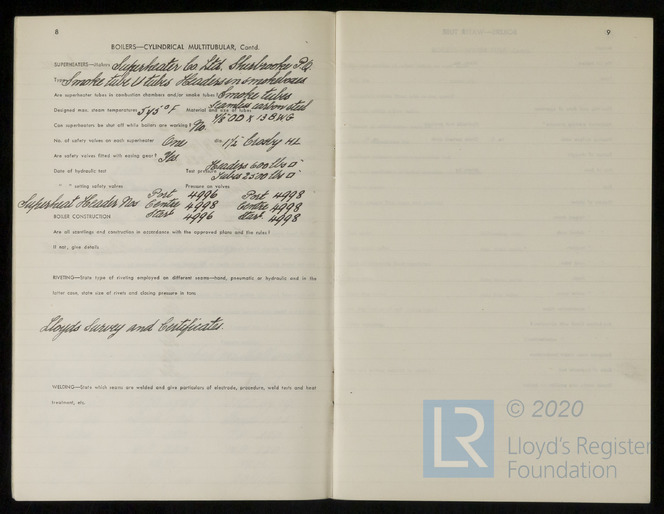 8
BOILERS—CYLINDRICAL MULTITUBULAR, Contd.
SUPERHEATERS—Makers Superheater Co. Ltd. Sherbrooke P.Q.
Type Smoke tube U tubes Headers in smokeboxes
Are superheater tubes in combustion chambers and/or smoke tubes? Smoke tubes
Designed max. steam temperatures 545°F Material and size of tubes Seamless carbon steel
Can superheaters be shut off while boilers are working? No. 7/8" OD x 13 BWG
No. of safety valves on each superheater One dia. 1½ Crosby HL
Are safety valves fitted with easing gear? Yes
Date of hydraulic test Test pressure Headers 600 lbs □"
Tubes 2500 lbs □"
" " setting safety valves Pressure on valves
Superheat Header Nos Port 4996 Port 4998
Centre 4998 Centre 4998
BOILER CONSTRUCTION Starb 4996 Starb 4998
Are all scantlings and construction in accordance with the approved plans and the rules?
If not, give details
RIVETING—State type of riveting employed on different seams—hand, pneumatic or hydraulic and in the
latter case, state size of rivets and closing pressure in tons.
Lloyds Survey and Certificates.
WELDING—State which seams are welded and give particulars of electrode, procedure, weld tests and heat
treatment, etc.
9
LR
© 2020
Lloyd's Register
Foundation